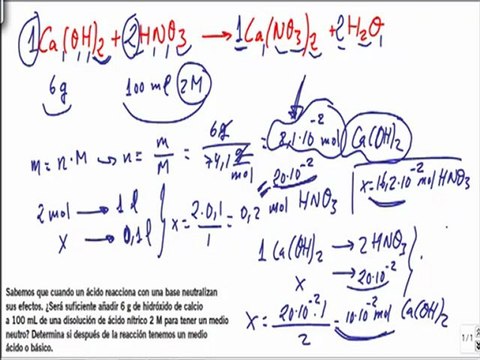 1Ca(OH)2 + 2HNO3 → 1Ca(NO3)2 + 2H2O
6g 100 ml 2M
m = n·M → n = m/M = 6g/74,1 g/mol = 8,1·10^-2 mol Ca(OH)2
20·10^-2
x = 16,2·10^-2 mol HNO3
2 mol → 1 l
x → 0,1 l
x = 2·0,1/1 = 0,2 mol HNO3
1 Ca(OH)2 → 2 HNO3
x → 20·10^-2
x = 20·10^-2·1/2 = 10·10^-2 mol Ca(OH)2
Sabemos que cuando un ácido reacciona con una base neutralizan
sus efectos. ¿Será suficiente añadir 6 g de hidróxido de calcio
a 100 mL de una disolución de ácido nítrico 2 M para tener un medio
neutro? Determina si después de la reacción tenemos un medio
ácido o básico.
1/1